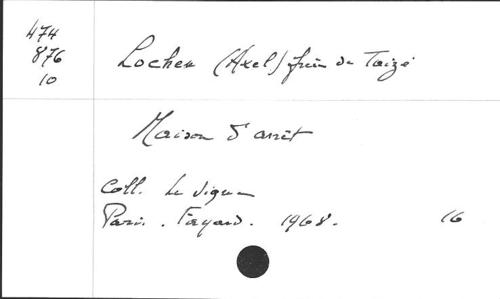 474
876
10
Lochen (Axel) frère de Taizé
Maison d'arrêt
Coll. Le Signe
Paris. Fayard. 1968. 16